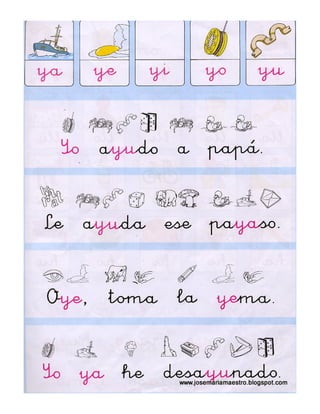 ya ye yi yo yu
Yo ayudo a papá.
Le ayuda ese payaso.
Oye, toma la yema.
Yo ya he desayunado.
www.josemariamaestro.blogspot.com